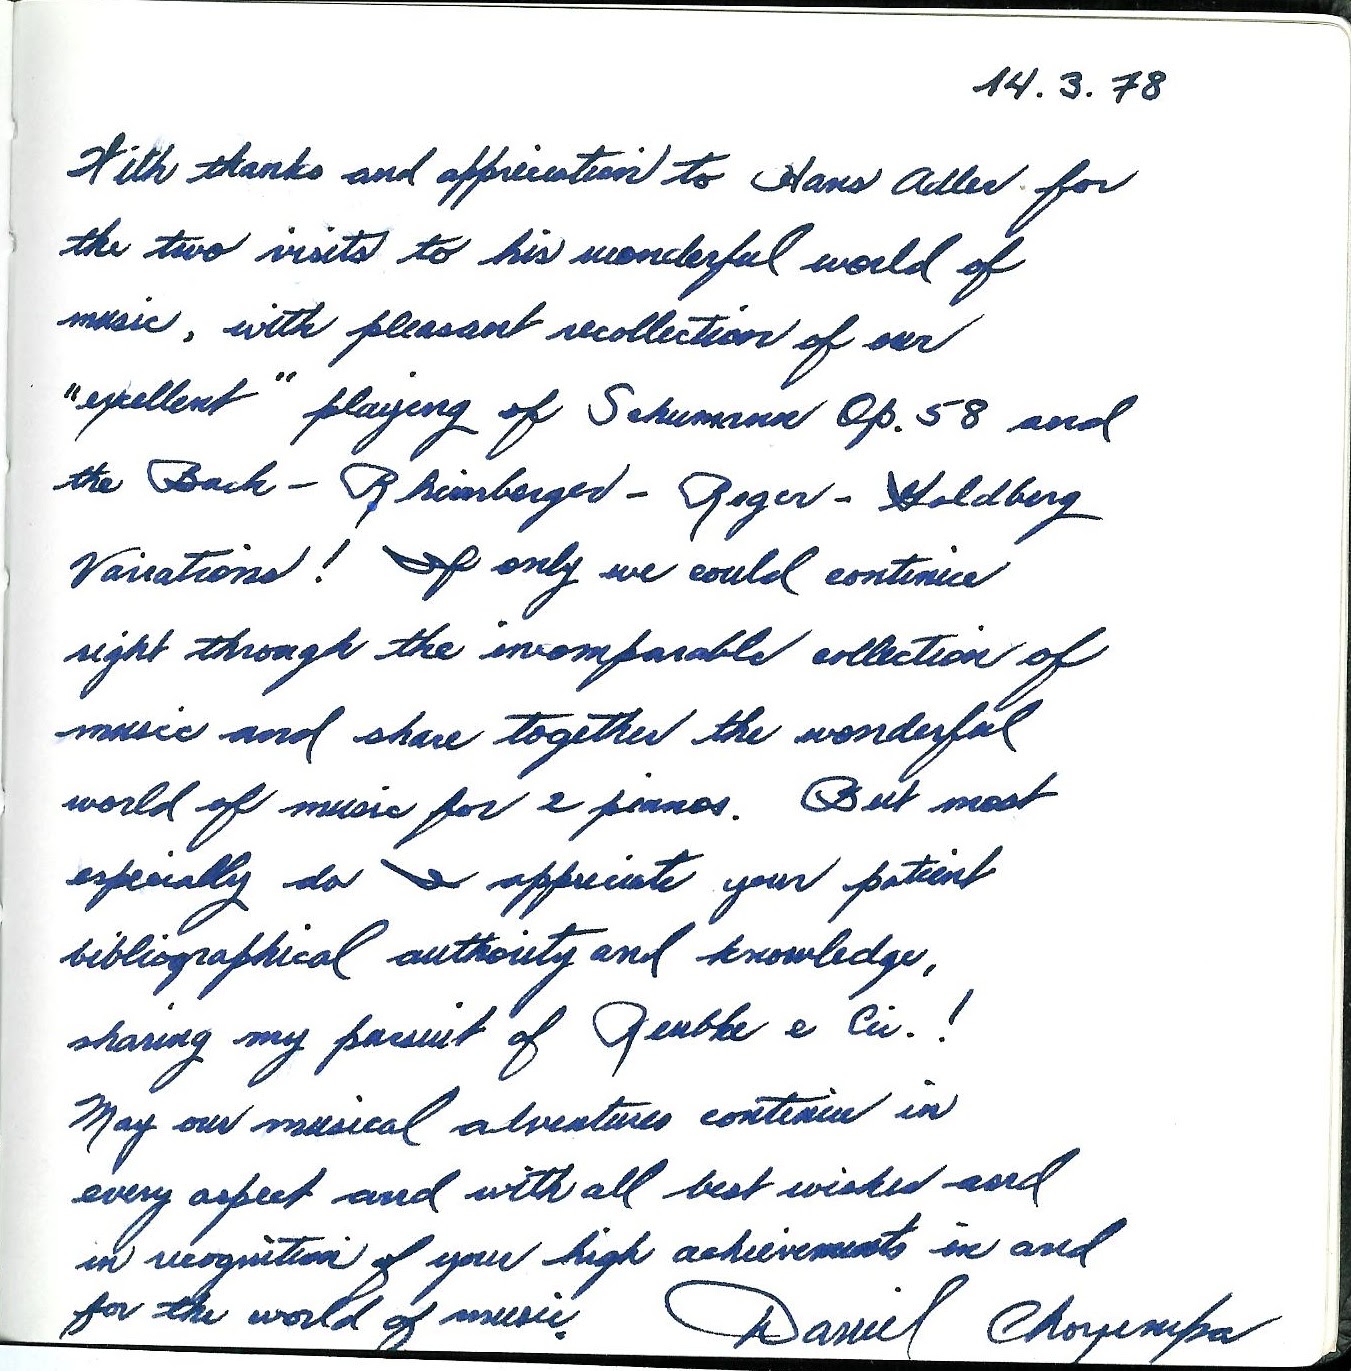 14.3.78
With thanks and appreciation to Hans Adler for
the two visits to his wonderful world of
music, with pleasant recollection of our
"excellent" playing of Schumann Op. 58 and
the Bach - Rheinberger - Reger - Goldberg
Variations! If only we could continue
right through the incomparable collection of
music and share together the wonderful
world of music for 2 pianos. But most
especially do I appreciate your patient
bibliographical authority and knowledge,
sharing my pursuit of Reubke e Cie.!
May our musical adventures continue in
every aspect and with all best wishes and
in recognition of your high achievements in and
for the world of music.
Daniel Chorzempa